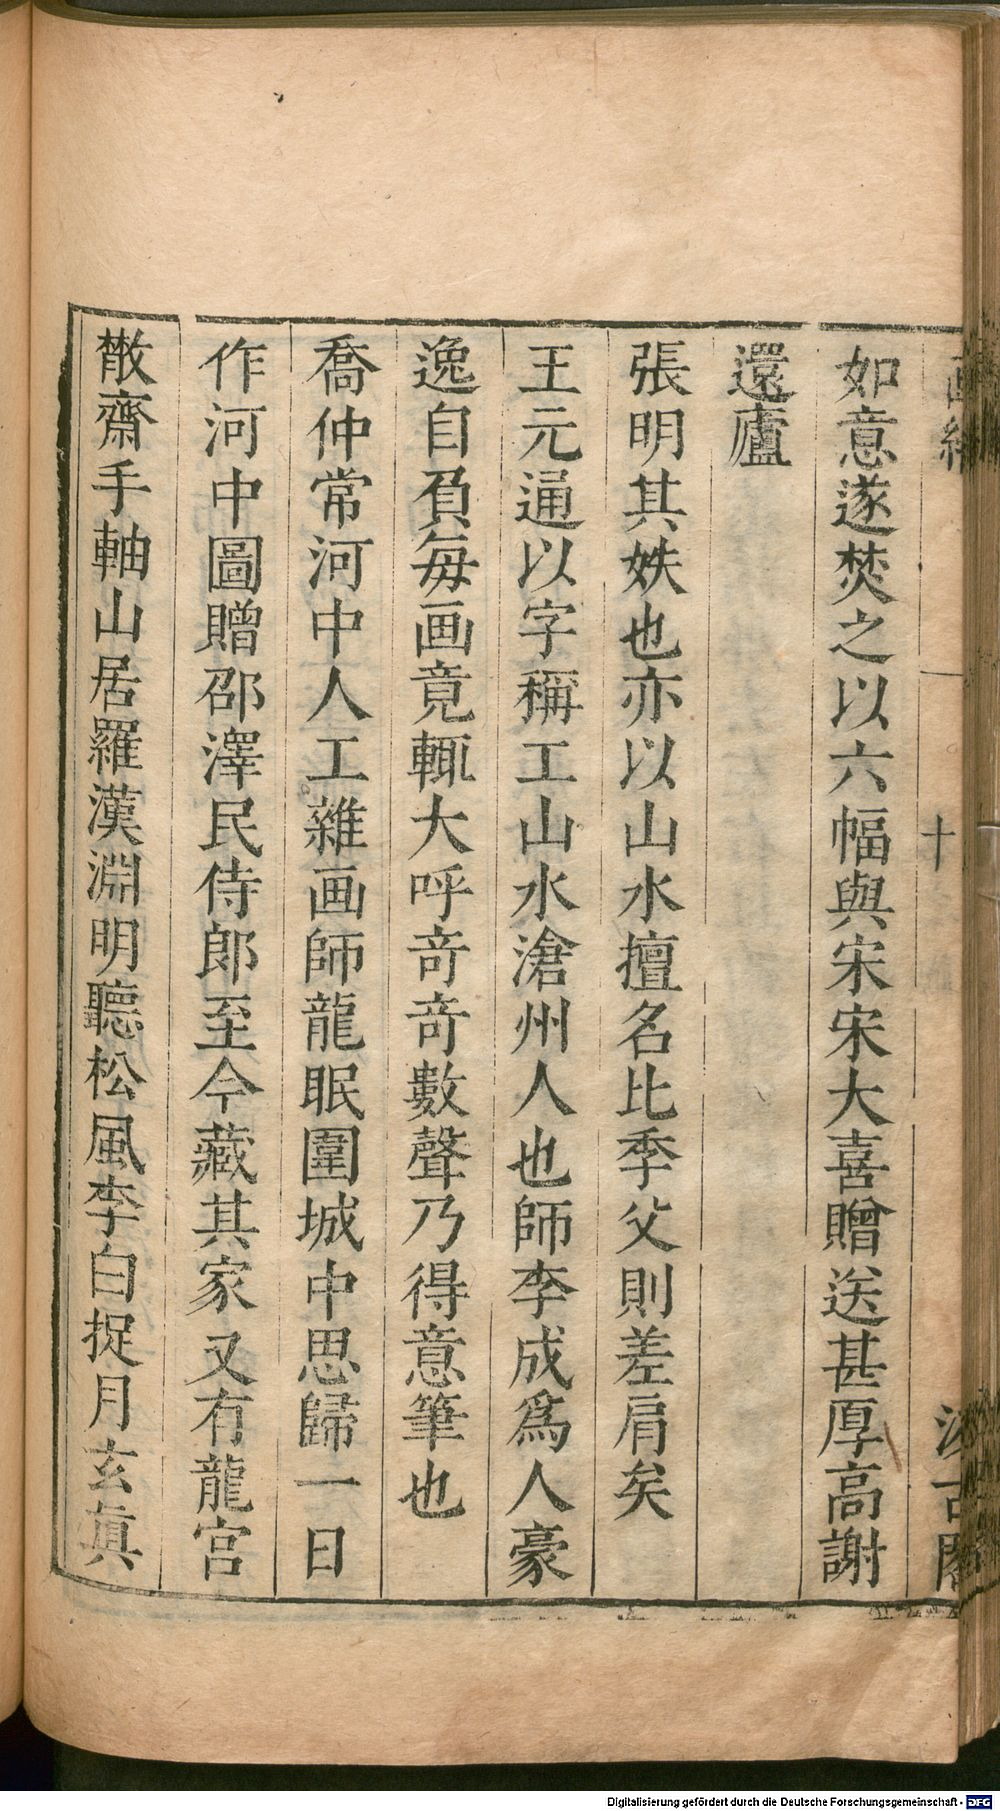 十
如意遂焚之以六幅與宋宋大喜贈送甚厚高謝
還廬
張明其姪也亦以山水擅名比季父則差肩矣
王元通以字稱工山水滄州人也師李成爲人豪
逸自負每画竟輒大呼奇奇數聲乃得意筆也
喬仲常河中人工雜画師龍眠圍城中思歸一日
作河中圖贈邵澤民侍郎至今藏其家又有龍宮
散齋手軸山居羅漢淵明聽松風李白捉月玄眞
Digitalisierung gefördert durch die Deutsche Forschungsgemeinschaft - DFG